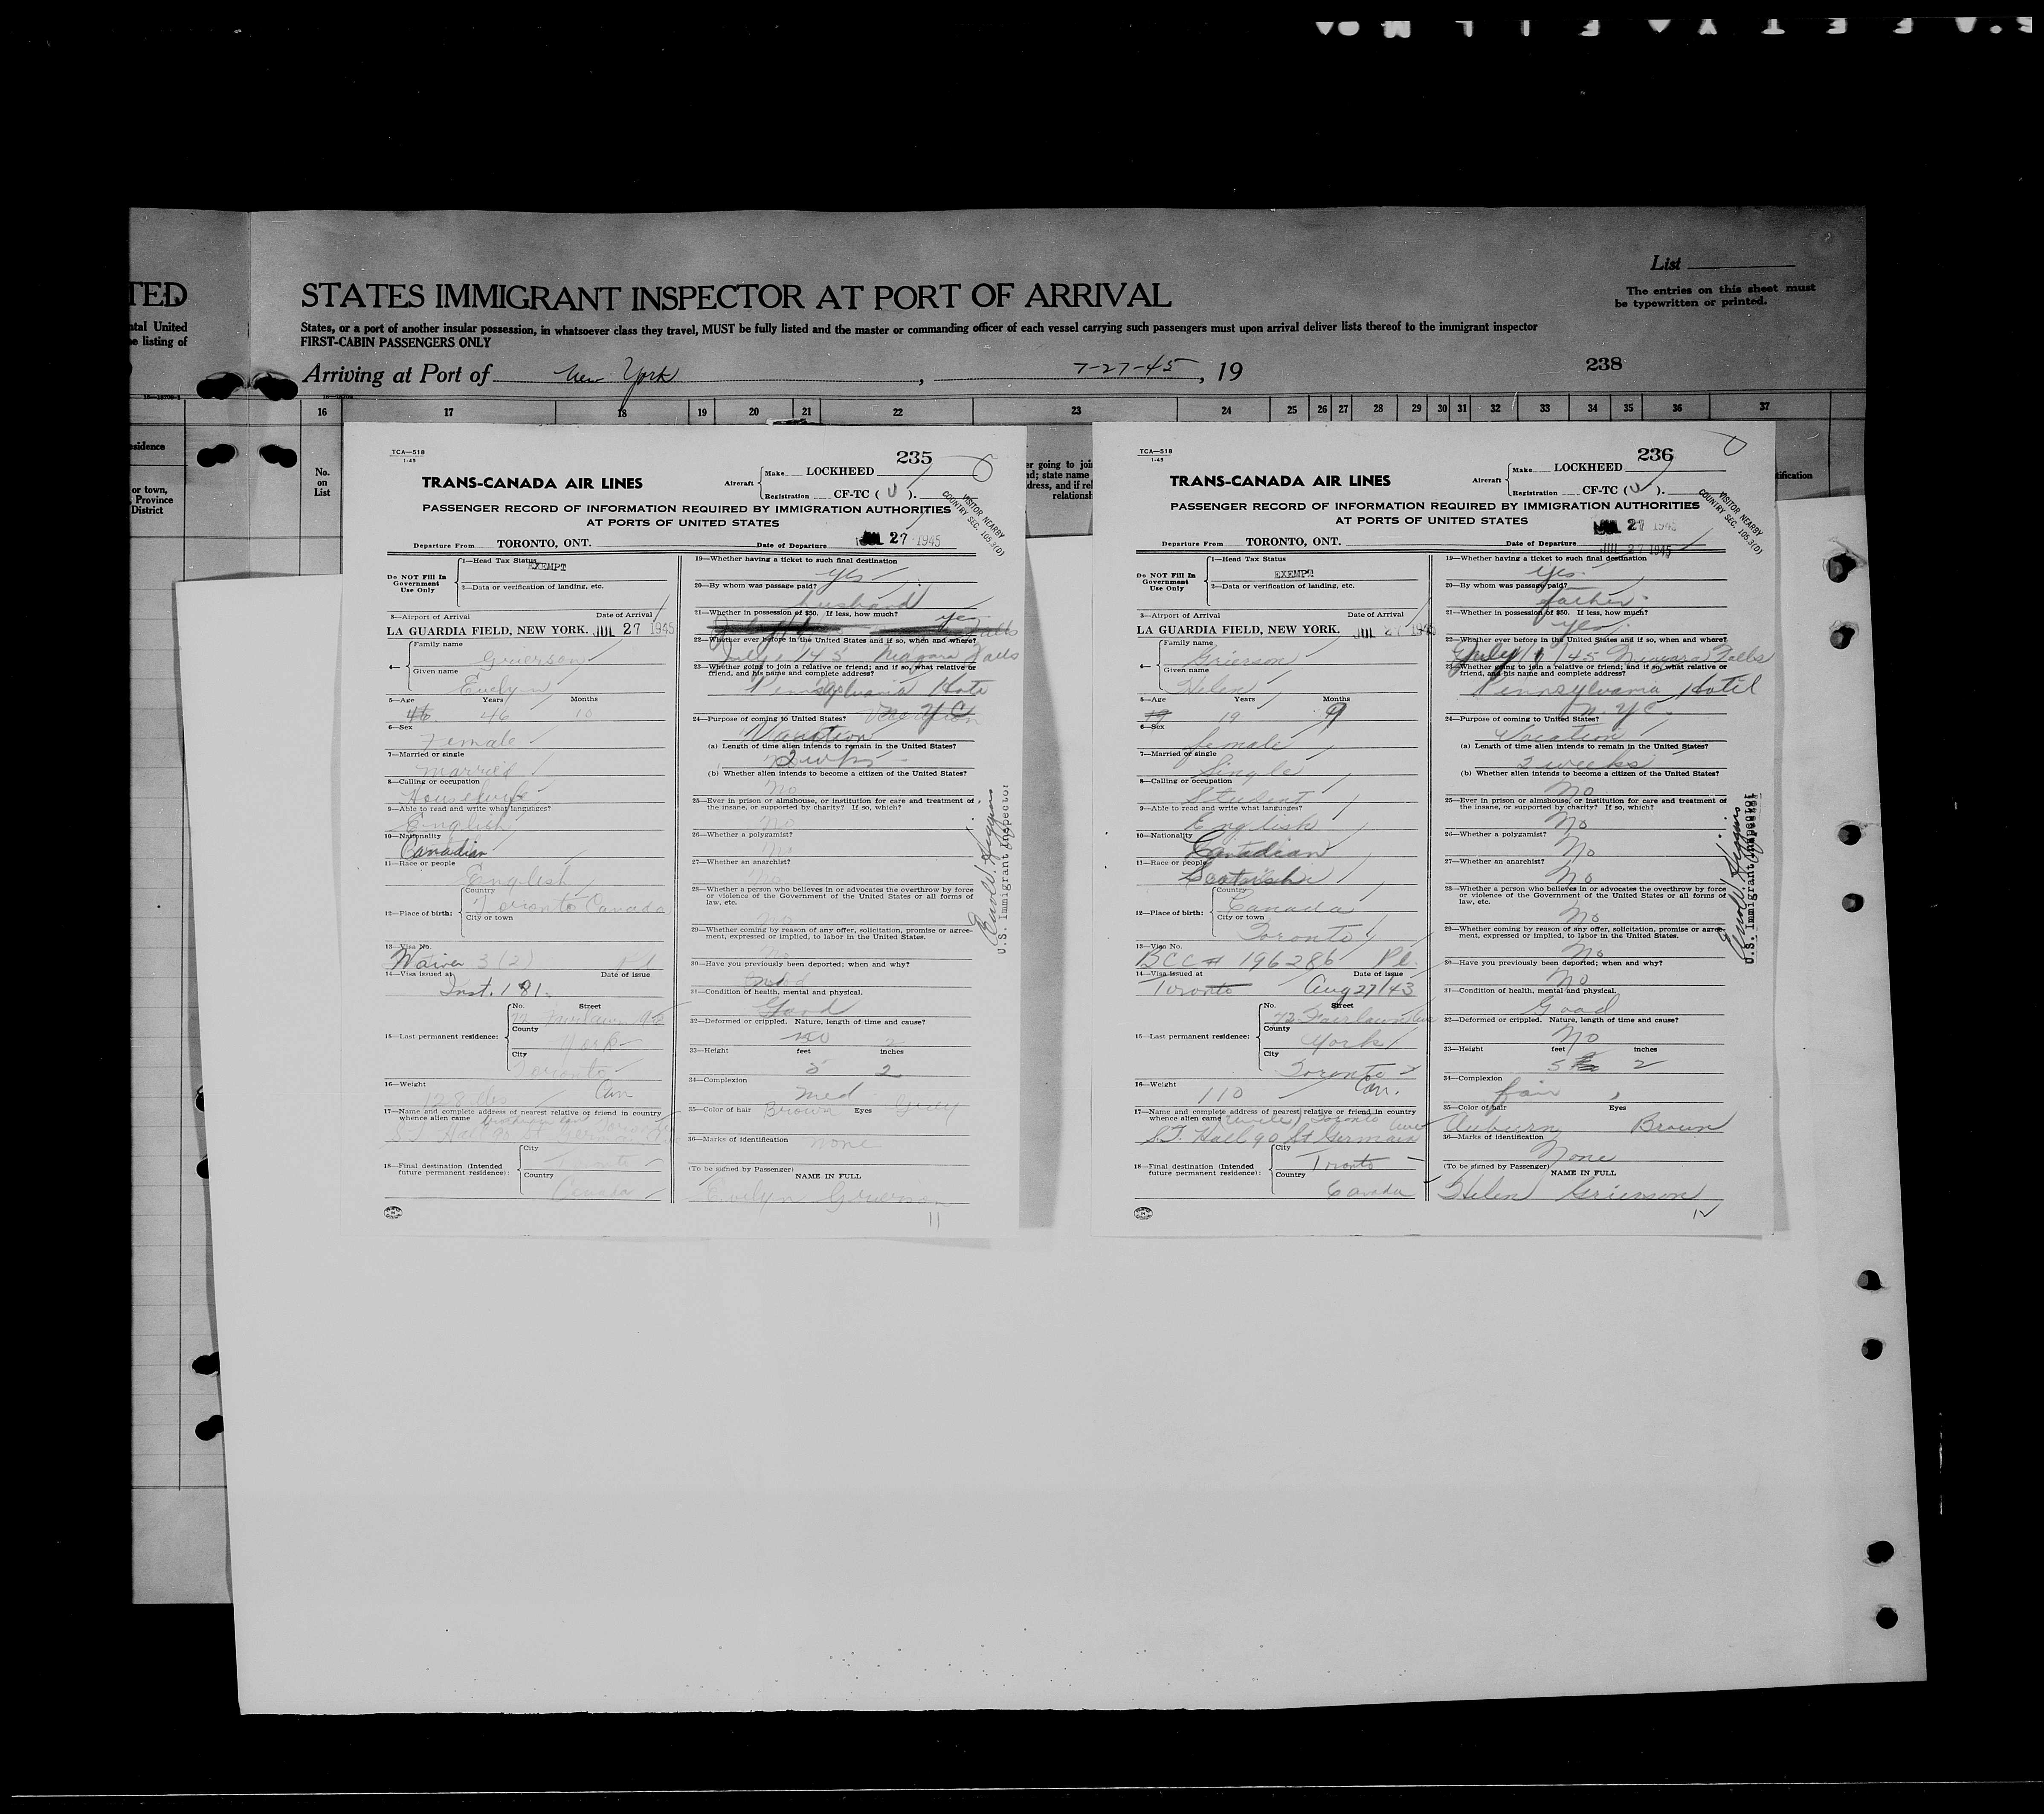 TED
ntal United
e listing of
STATES IMMIGRANT INSPECTOR AT PORT OF ARRIVAL
States, or a port of another insular possession, in whatsoever class they travel, MUST be fully listed and the master or commanding officer of each vessel carrying such passengers must upon arrival deliver lists thereof to the immigrant inspector
FIRST-CABIN PASSENGERS ONLY
List
The entries on this sheet must
be typewritten or printed.
Arriving at Port of New York, 7-27-45, 19
238
16 17 18 19 20 21 22 23 24 25 26 27 28 29 30 31 32 33 34 35 36 37
sidence
or town,
Province
District
No.
on
List
er going to joi
nd; state name
dress, and if rel
relationsh
tification
TCA—518
1-45
235
TRANS-CANADA AIR LINES
Aircraft
Make LOCKHEED
Registration CF-TC ( U ).
VISITOR NEARBY
COUNTRY SEC. 105.3(D)
PASSENGER RECORD OF INFORMATION REQUIRED BY IMMIGRATION AUTHORITIES
AT PORTS OF UNITED STATES
Departure From TORONTO, ONT.
Date of Departure JUL 27 1945
Do NOT Fill In
Government
Use Only
1—Head Tax Status
EXEMPT
2—Data or verification of landing, etc.
3—Airport of Arrival Date of Arrival
LA GUARDIA FIELD, NEW YORK. JUL 27 1945
4—
Family name
Grierson
Given name
Evelyn
5—Age Years Months
46 46 10
6—Sex
Female
7—Married or single
Married
8—Calling or occupation
Housewife
9—Able to read and write what languages?
English
10—Nationality
Canadian
11—Race or people
English
12—Place of birth:
Country
Toronto Canada
City or town
13—Visa No.
Waiver 3 (2)
14—Visa issued at Date of issue
Inst. 181.
15—Last permanent residence:
No. Street
72 Fairlawn Ave
County
York
City
Toronto
Can
16—Weight
128 lbs
17—Name and complete address of nearest relative or friend in country
whence alien came
18—Final destination (Intended
future permanent residence):
City
Toronto
Country
Canada
19—Whether having a ticket to such final destination
yes
20—By whom was passage paid?
husband
21—Whether in possession of $50. If less, how much?
yes
22—Whether ever before in the United States and if so, when and where?
July 1 45 Niagara Falls
23—Whether going to join a relative or friend; and if so, what relative or
friend, and his name and complete address?
Pennsylvania Hote
N.Y.C
24—Purpose of coming to United States?
Vacation
(a) Length of time alien intends to remain in the United States?
2 wks
(b) Whether alien intends to become a citizen of the United States?
No
25—Ever in prison or almshouse, or institution for care and treatment of
the insane, or supported by charity? If so, which?
No
26—Whether a polygamist?
No
27—Whether an anarchist?
No
28—Whether a person who believes in or advocates the overthrow by force
or violence of the Government of the United States or all forms of
law, etc.
No
29—Whether coming by reason of any offer, solicitation, promise or agree-
ment, expressed or implied, to labor in the United States.
No
30—Have you previously been deported; when and why?
31—Condition of health, mental and physical.
Good
32—Deformed or crippled. Nature, length of time and cause?
no
33—Height feet inches
5 2
34—Complexion
med
35—Color of hair Brown Eyes Grey
36—Marks of identification
none
(To be signed by Passenger)
NAME IN FULL
Evelyn Grierson
11
U.S. Immigrant Inspector
TCA—518
1-45
236
TRANS-CANADA AIR LINES
Aircraft
Make LOCKHEED
Registration CF-TC ( U ).
VISITOR NEARBY
COUNTRY SEC. 105.3(D)
PASSENGER RECORD OF INFORMATION REQUIRED BY IMMIGRATION AUTHORITIES
AT PORTS OF UNITED STATES
JUL 27 1945
Departure From TORONTO, ONT.
Date of Departure JUL 27 1945
Do NOT Fill In
Government
Use Only
1—Head Tax Status
EXEMPT
2—Data or verification of landing, etc.
3—Airport of Arrival Date of Arrival
LA GUARDIA FIELD, NEW YORK. JUL 27 1945
4—
Family name
Grierson
Given name
Helen
5—Age Years Months
19 19 9
6—Sex
female
7—Married or single
Single
8—Calling or occupation
Student
9—Able to read and write what languages?
English
10—Nationality
Canadian
11—Race or people
Scottish
12—Place of birth:
Country
Canada
City or town
Toronto
13—Visa No.
BCC # 196286 Pl.
14—Visa issued at Date of issue
Toronto Aug 27/43
15—Last permanent residence:
No. Street
72 Fairlawn Ave
County
York
City
Toronto
Can.
16—Weight
110
17—Name and complete address of nearest relative or friend in country
whence alien came (Uncle) Toronto
S.T. Hall 90 St Germain Ave
18—Final destination (Intended
future permanent residence):
City
Toronto
Country
Canada
19—Whether having a ticket to such final destination
yes.
20—By whom was passage paid?
father.
21—Whether in possession of $50. If less, how much?
yes.
22—Whether ever before in the United States and if so, when and where?
July 1/45 Niagara Falls
23—Whether going to join a relative or friend; and if so, what relative or
friend, and his name and complete address?
Pennsylvania Hotel
N.Y.C.
24—Purpose of coming to United States?
Vacation
(a) Length of time alien intends to remain in the United States?
2 weeks
(b) Whether alien intends to become a citizen of the United States?
No
25—Ever in prison or almshouse, or institution for care and treatment of
the insane, or supported by charity? If so, which?
No
26—Whether a polygamist?
No
27—Whether an anarchist?
No
28—Whether a person who believes in or advocates the overthrow by force
or violence of the Government of the United States or all forms of
law, etc.
No
29—Whether coming by reason of any offer, solicitation, promise or agree-
ment, expressed or implied, to labor in the United States.
No
30—Have you previously been deported; when and why?
No
31—Condition of health, mental and physical.
Good
32—Deformed or crippled. Nature, length of time and cause?
No
33—Height feet inches
5 2
34—Complexion
fair
35—Color of hair Eyes
Auburn Brown
36—Marks of identification
None
(To be signed by Passenger)
NAME IN FULL
Helen Grierson
12
U.S. Immigrant Inspector